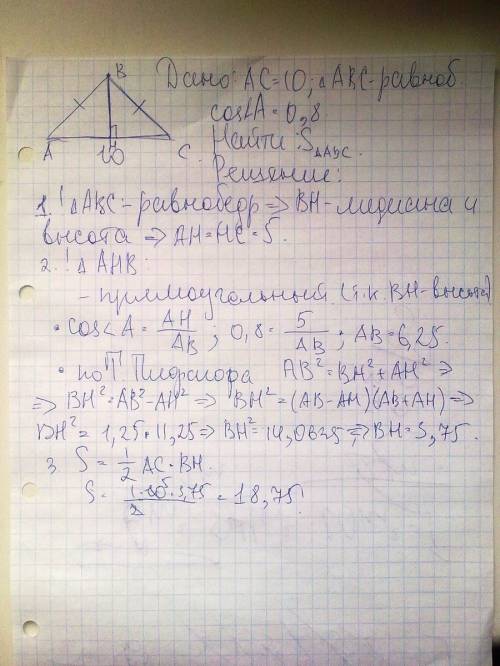 B
Дано: AC=10; △ABC-равноб.
cos∠A=0,8
A 10 C
Найти: S△ABC.
Решение:
1. ! △ABC-равнобедр ⇒ BH-медиана и
высота ⇒ AH=HC=5.
2. ! △AHB:
- прямоугольный (т.к. BH-высота)
• cos∠A = AH/AB ; 0,8 = 5/AB ; AB=6,25.
• по Т. Пифагора AB²=BH²+AH² ⇒
⇒ BH²=AB²-AH² ⇒ BH²=(AB-AH)(AB+AH) ⇒
BH²= 1,25·11,25 ⇒ BH²=14,0625 ⇒ BH=3,75.
3. S= 1/2 AC·BH.
S= 1·10·3,75/2 = 18,75!